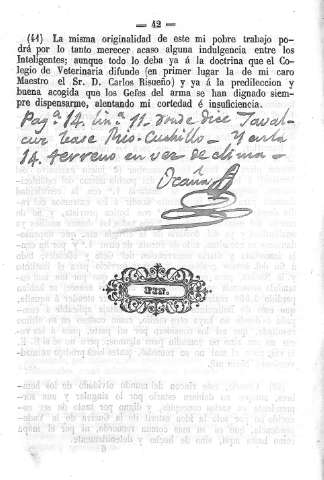 — 42 —
(44) La misma originalidad de este mi pobre trabajo po-
drá por lo tanto merecer acaso alguna indulgencia entre los
Inteligentes; aunque todo lo deba ya á la doctrina que el Co-
legio de Veterinaria difunde (en primer lugar la de mi caro
Maestro el Sr. D. Carlos Risueño) y ya á la predileccion y
buena acogida que los Gefes del arma se han dignado siem-
pre dispensarme, alentando mi cortedad é insuficiencia.
Pag.ª 14. lin.ª 11. donde dice
lease Rio-Cuchillo — Y en la
14. terreno en vez de clima —
Ocaña
FIN.